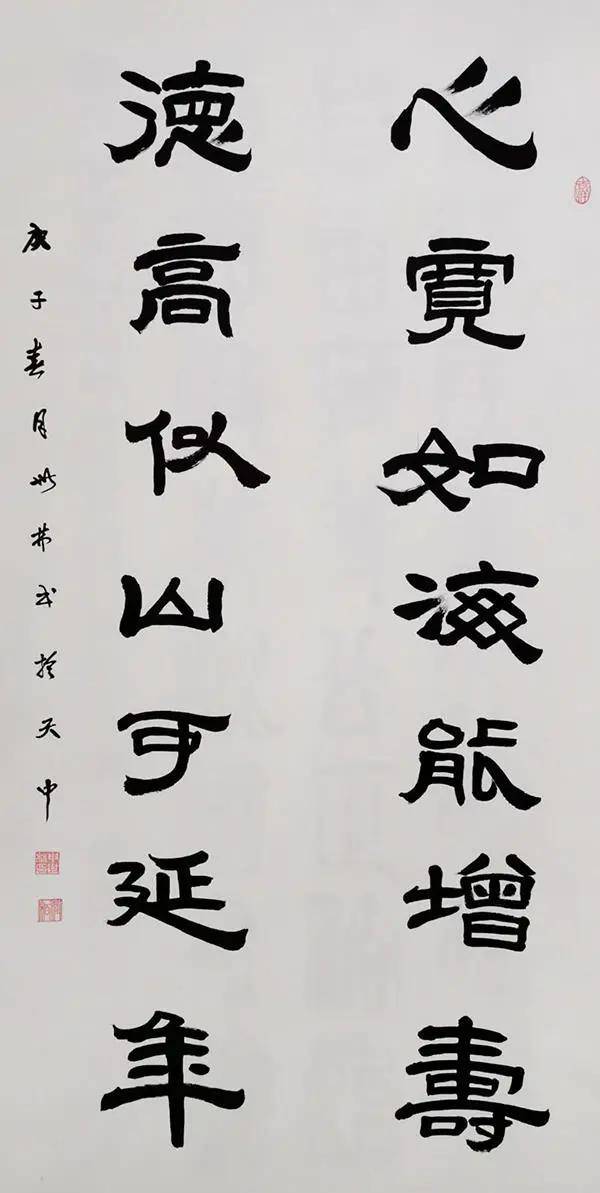 心寬如海能增壽
德高似山可延年
庚子春月於天中